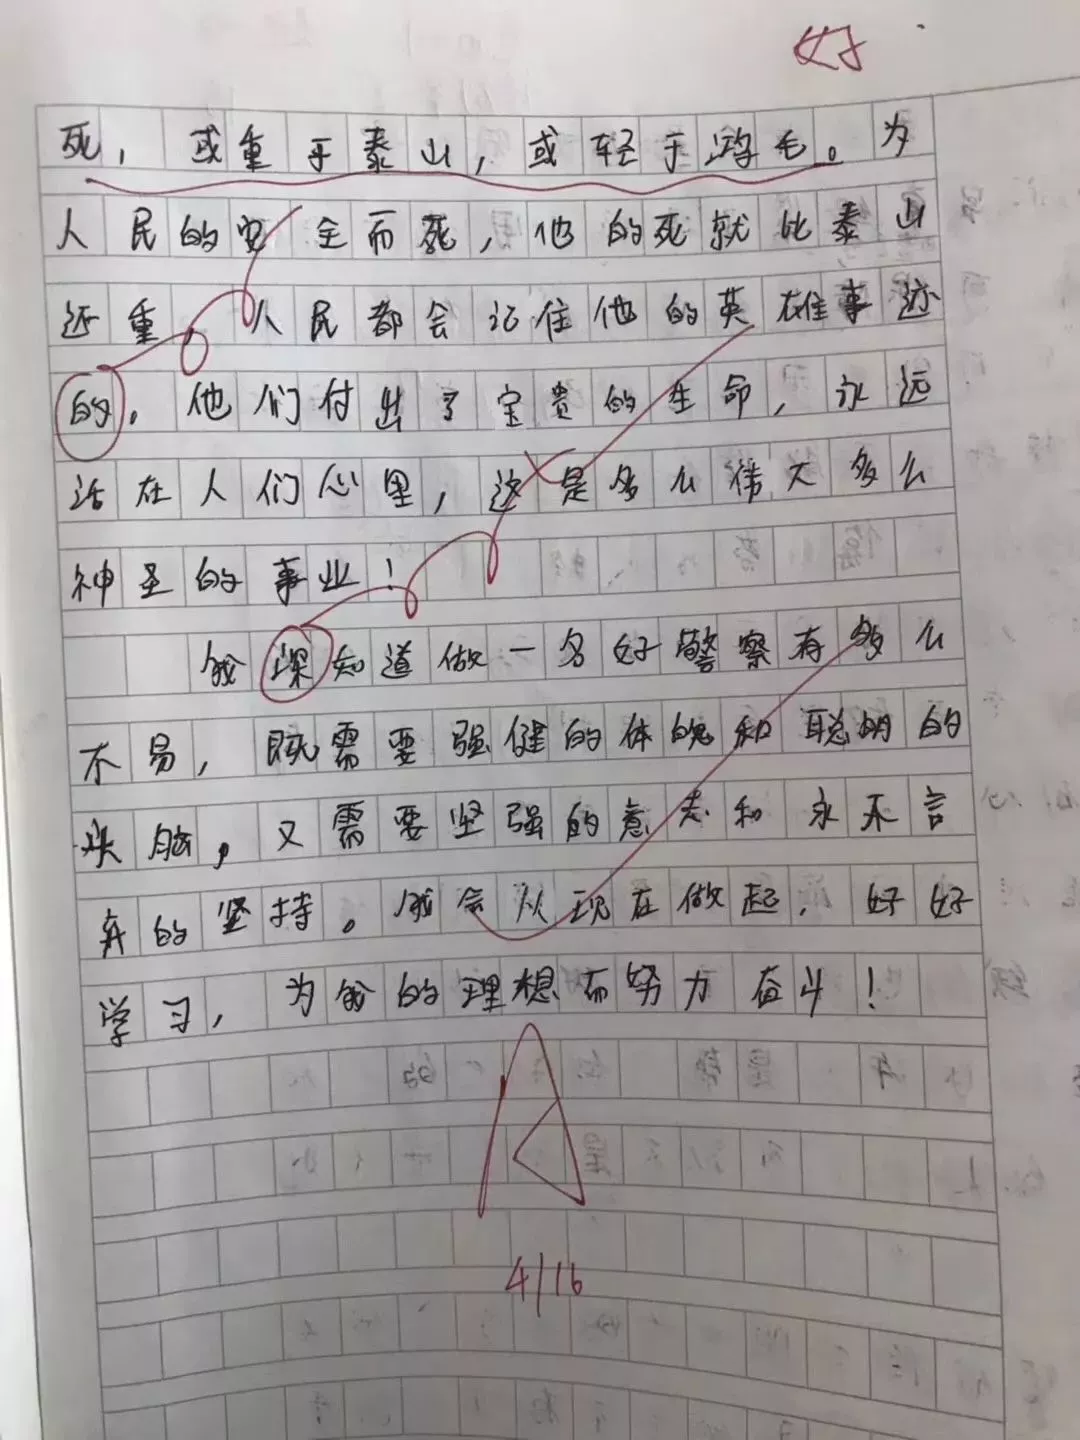 好
死，或重于泰山，或轻于鸿毛。为
人民的安全而死，他的死就比泰山
还重。人民都会记住他的英雄事迹
的，他们付出了宝贵的生命，永远
活在人们心里，这是多么伟大多么
神圣的事业！
我深知道做一名好警察有多么
不易，既需要强健的体魄和聪明的
头脑，又需要坚强的意志和永不言
弃的坚持。我会从现在做起，好好
学习，为我的理想而努力奋斗！
A
4/16